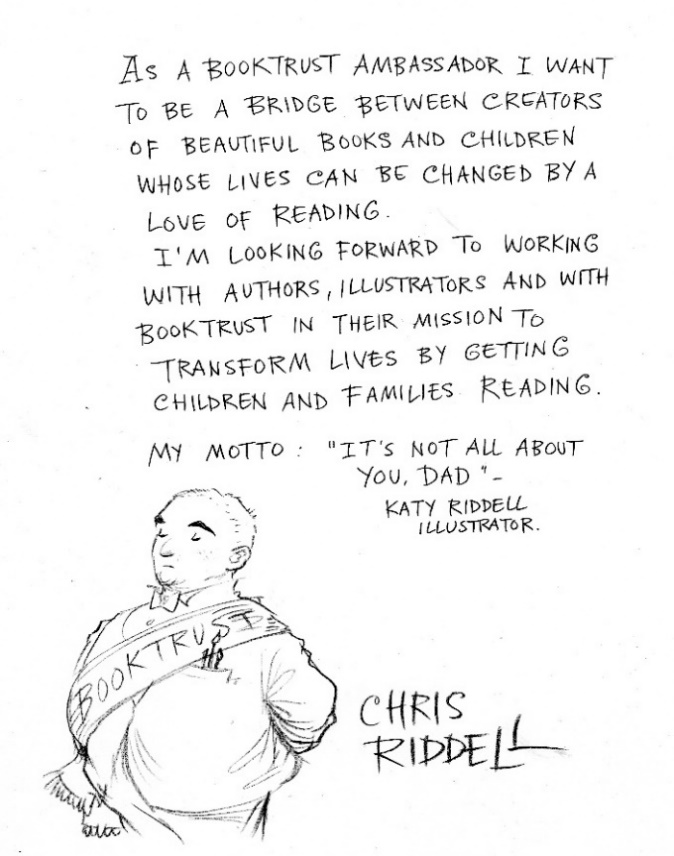 AS A BOOKTRUST AMBASSADOR I WANT
TO BE A BRIDGE BETWEEN CREATORS
OF BEAUTIFUL BOOKS AND CHILDREN
WHOSE LIVES CAN BE CHANGED BY A
LOVE OF READING.
I'M LOOKING FORWARD TO WORKING
WITH AUTHORS, ILLUSTRATORS AND WITH
BOOKTRUST IN THEIR MISSION TO
TRANSFORM LIVES BY GETTING
CHILDREN AND FAMILIES READING.
MY MOTTO : "IT'S NOT ALL ABOUT
YOU, DAD" -
KATY RIDDELL
ILLUSTRATOR.
BOOKTRUST
CHRIS
RIDDELL